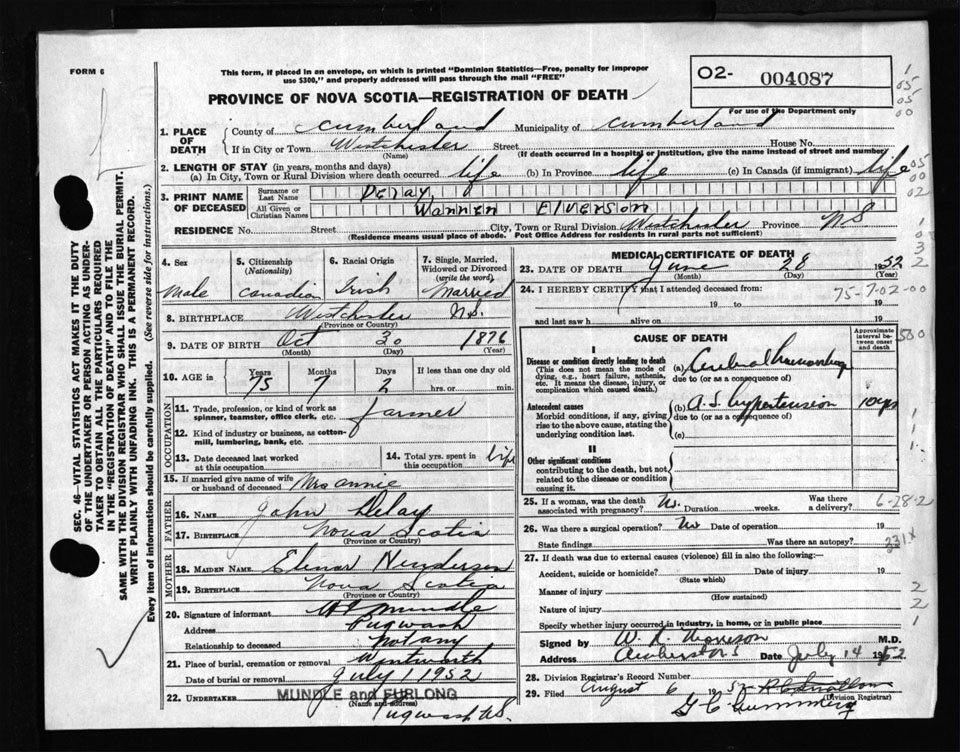 FORM 6
This form, if placed in an envelope, on which is printed "Dominion Statistics—Free, penalty for improper
use $300," and properly addressed will pass through the mail "FREE"
O2- 004087
For use of the Department only
PROVINCE OF NOVA SCOTIA—REGISTRATION OF DEATH
1. PLACE OF DEATH County of Cumberland Municipality of Cumberland
If in City or Town Westchester Street House No.
(Name) (If death occurred in a hospital or institution, give the name instead of street and number)
2. LENGTH OF STAY (in years, months and days)
(a) In City, Town or Rural Division where death occurred life (b) In Province life (c) In Canada (if immigrant) life
3. PRINT NAME OF DECEASED Surname or Last Name DeLay
All Given or Christian Names Warren Elverson
RESIDENCE No. Street City, Town or Rural Division Westchester Province N.S.
(Residence means usual place of abode. Post Office Address for residents in rural parts not sufficient)
4. Sex Male
5. Citizenship (Nationality) Canadian
6. Racial Origin Irish
7. Single, Married, Widowed or Divorced (write the word) Married
8. BIRTHPLACE Westchester N.S.
(Province or Country)
9. DATE OF BIRTH Oct 30 1876
(Month) (Day) (Year)
10. AGE is Years 75 Months 7 Days 2 If less than one day old hrs. or min.
OCCUPATION
11. Trade, profession, or kind of work as spinner, teamster, office clerk, etc. farmer
12. Kind of industry or business, as cotton-mill, lumbering, bank, etc.
13. Date deceased last worked at this occupation
14. Total yrs. spent in this occupation life
15. If married give name of wife or husband of deceased Mrs Annie
FATHER
16. NAME John Delay
17. BIRTHPLACE Nova Scotia
(Province or Country)
MOTHER
18. MAIDEN NAME Elinor Henderson
19. BIRTHPLACE Nova Scotia
(Province or Country)
20. Signature of informant Mundle
Address Pugwash
Relationship to deceased not any
21. Place of burial, cremation or removal Wentworth
Date of burial or removal July 1 1952
22. UNDERTAKER MUNDLE and FURLONG
(Name and address)
Pugwash N.S.
MEDICAL CERTIFICATE OF DEATH
23. DATE OF DEATH June 28 1952
(Month) (Day) (Year)
24. I HEREBY CERTIFY that I attended deceased from:
19 to 19
and last saw h alive on 19
75-7-02-00
CAUSE OF DEATH
Approximate interval between onset and death
Disease or condition directly leading to death
(This does not mean the mode of dying, e.g., heart failure, asthenia, etc. It means the disease, injury, or complication which caused death.)
(a) Cerebral Hemorrhage
due to (or as a consequence of)
Antecedent causes
Morbid conditions, if any, giving rise to the above cause, stating the underlying condition last.
(b) A.S. hypertension 10 yrs
due to (or as a consequence of)
(c)
II
Other significant conditions
contributing to the death, but not related to the disease or condition causing it.
25. If a woman, was the death associated with pregnancy? No. Duration weeks. Was there a delivery?
6-28-2
26. Was there a surgical operation? No Date of operation 19
State findings Was there an autopsy?
331X
27. If death was due to external causes (violence) fill in also the following:—
Accident, suicide or homicide? Date of injury 19
(State which)
Manner of injury
(How sustained)
Nature of injury
Specify whether injury occurred in industry, in home, or in public place
Signed by W. R. Morrison M.D.
Address Amherst N.S. Date July 14 1952
28. Division Registrar's Record Number
29. Filed August 6 1952
(Division Registrar)
SEC. 46—VITAL STATISTICS ACT MAKES IT THE DUTY
OF THE UNDERTAKER OR PERSON ACTING AS UNDER-
TAKER TO OBTAIN ALL THE PARTICULARS REQUIRED
IN THE "REGISTRATION OF DEATH" AND TO FILE THE
SAME WITH THE DIVISION REGISTRAR WHO SHALL ISSUE THE BURIAL PERMIT.
WRITE PLAINLY WITH UNFADING INK. THIS IS A PERMANENT RECORD.
Every item of information should be carefully supplied. (See reverse side for instructions.)